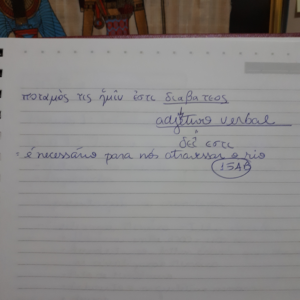 ποταμὸς τις ἡμῖν ἐστι διαβατεος
adjetivo verbal
δεῖ εστι
é necessário para nós atravessar o rio
15A6